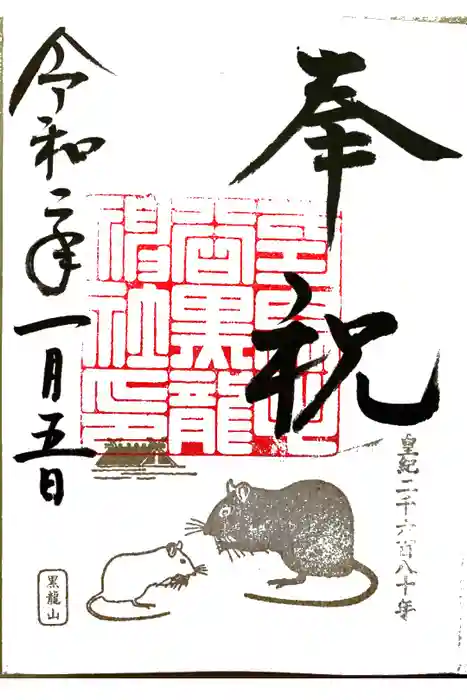 奉祝
皇紀二千六百八十年
黒龍
神社印
令和二年一月五日
黒龍山